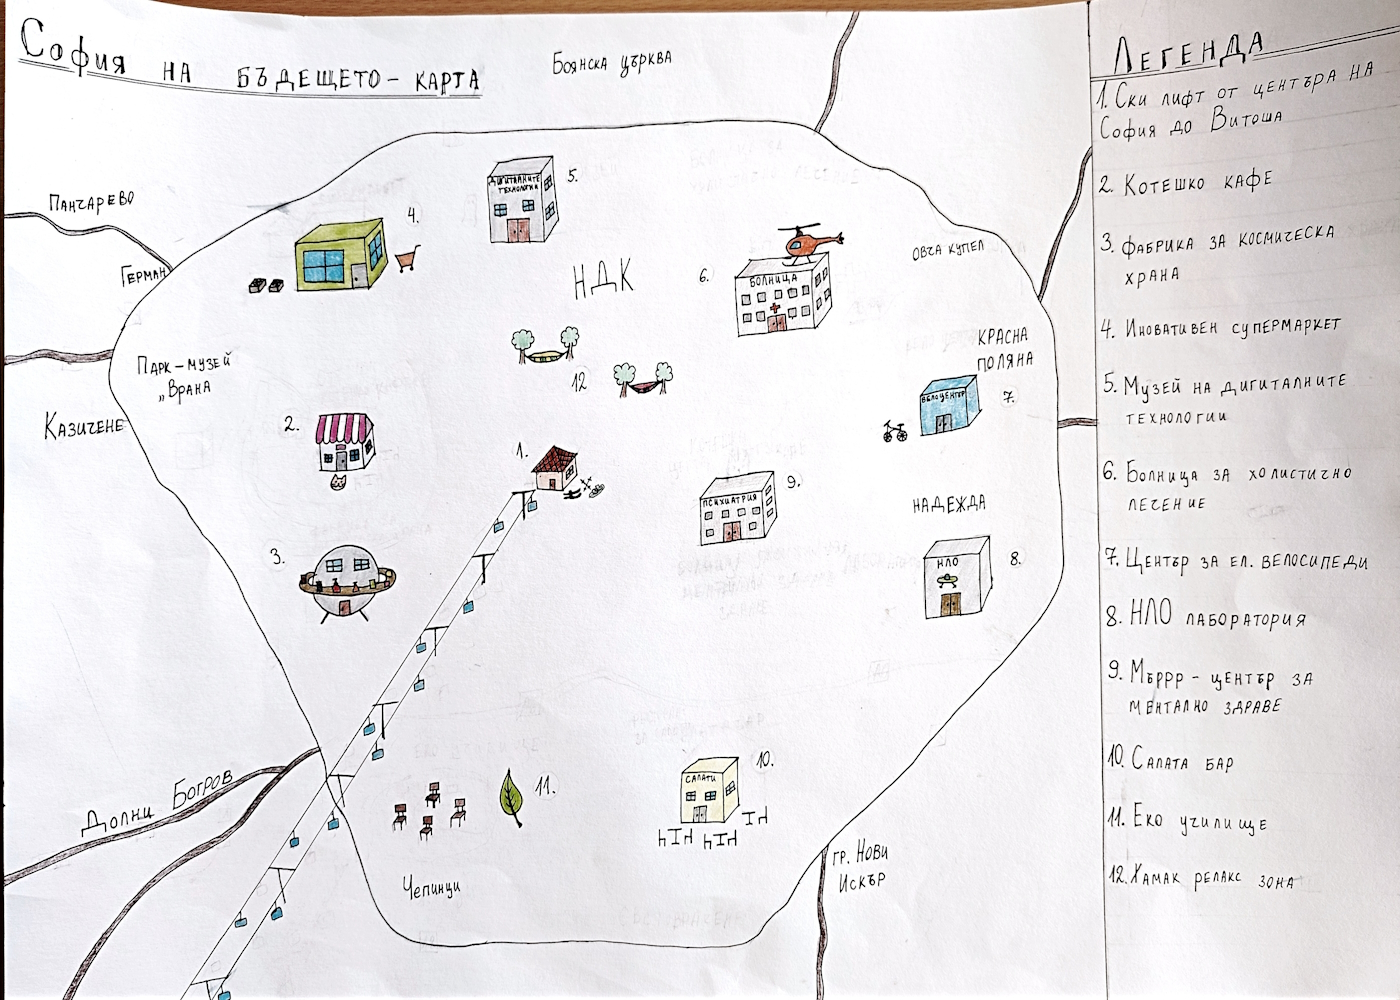 София на бъдещето - карта
Боянска църква
Панчарево
Герман
Парк - музей
"Врана
Казичене
4.
Дигиталните
технологии
5.
НДК
6.
Болница
Овча купел
Красна
поляна
Велоцентър
7.
12
2.
1.
Психиатрия
9.
Надежда
3.
НЛО
8.
Долни Богров
11.
Салати
10.
Чепинци
гр. Нови
Искър
Легенда
1. Ски лифт от центъра на
София до Витоша
2. Котешко кафе
3. Фабрика за космическа
храна
4. Иновативен супермаркет
5. Музей на дигиталните
технологии
6. Болница за холистично
лечение
7. Център за ел. велосипеди
8. НЛО лаборатория
9. Мъррр - център за
ментално здраве
10. Салата бар
11. Еко училище
12. Хамак релакс зона